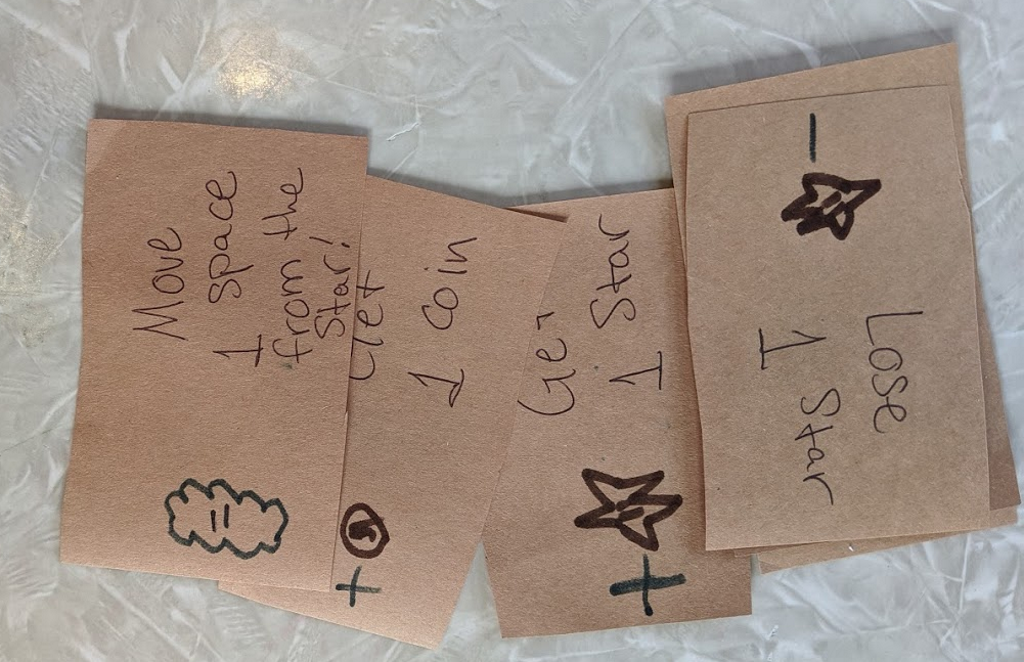 Move
1 space
from the
Star!
Get
1 coin
+
Get
1 Star
+
-
Lose
1 Star